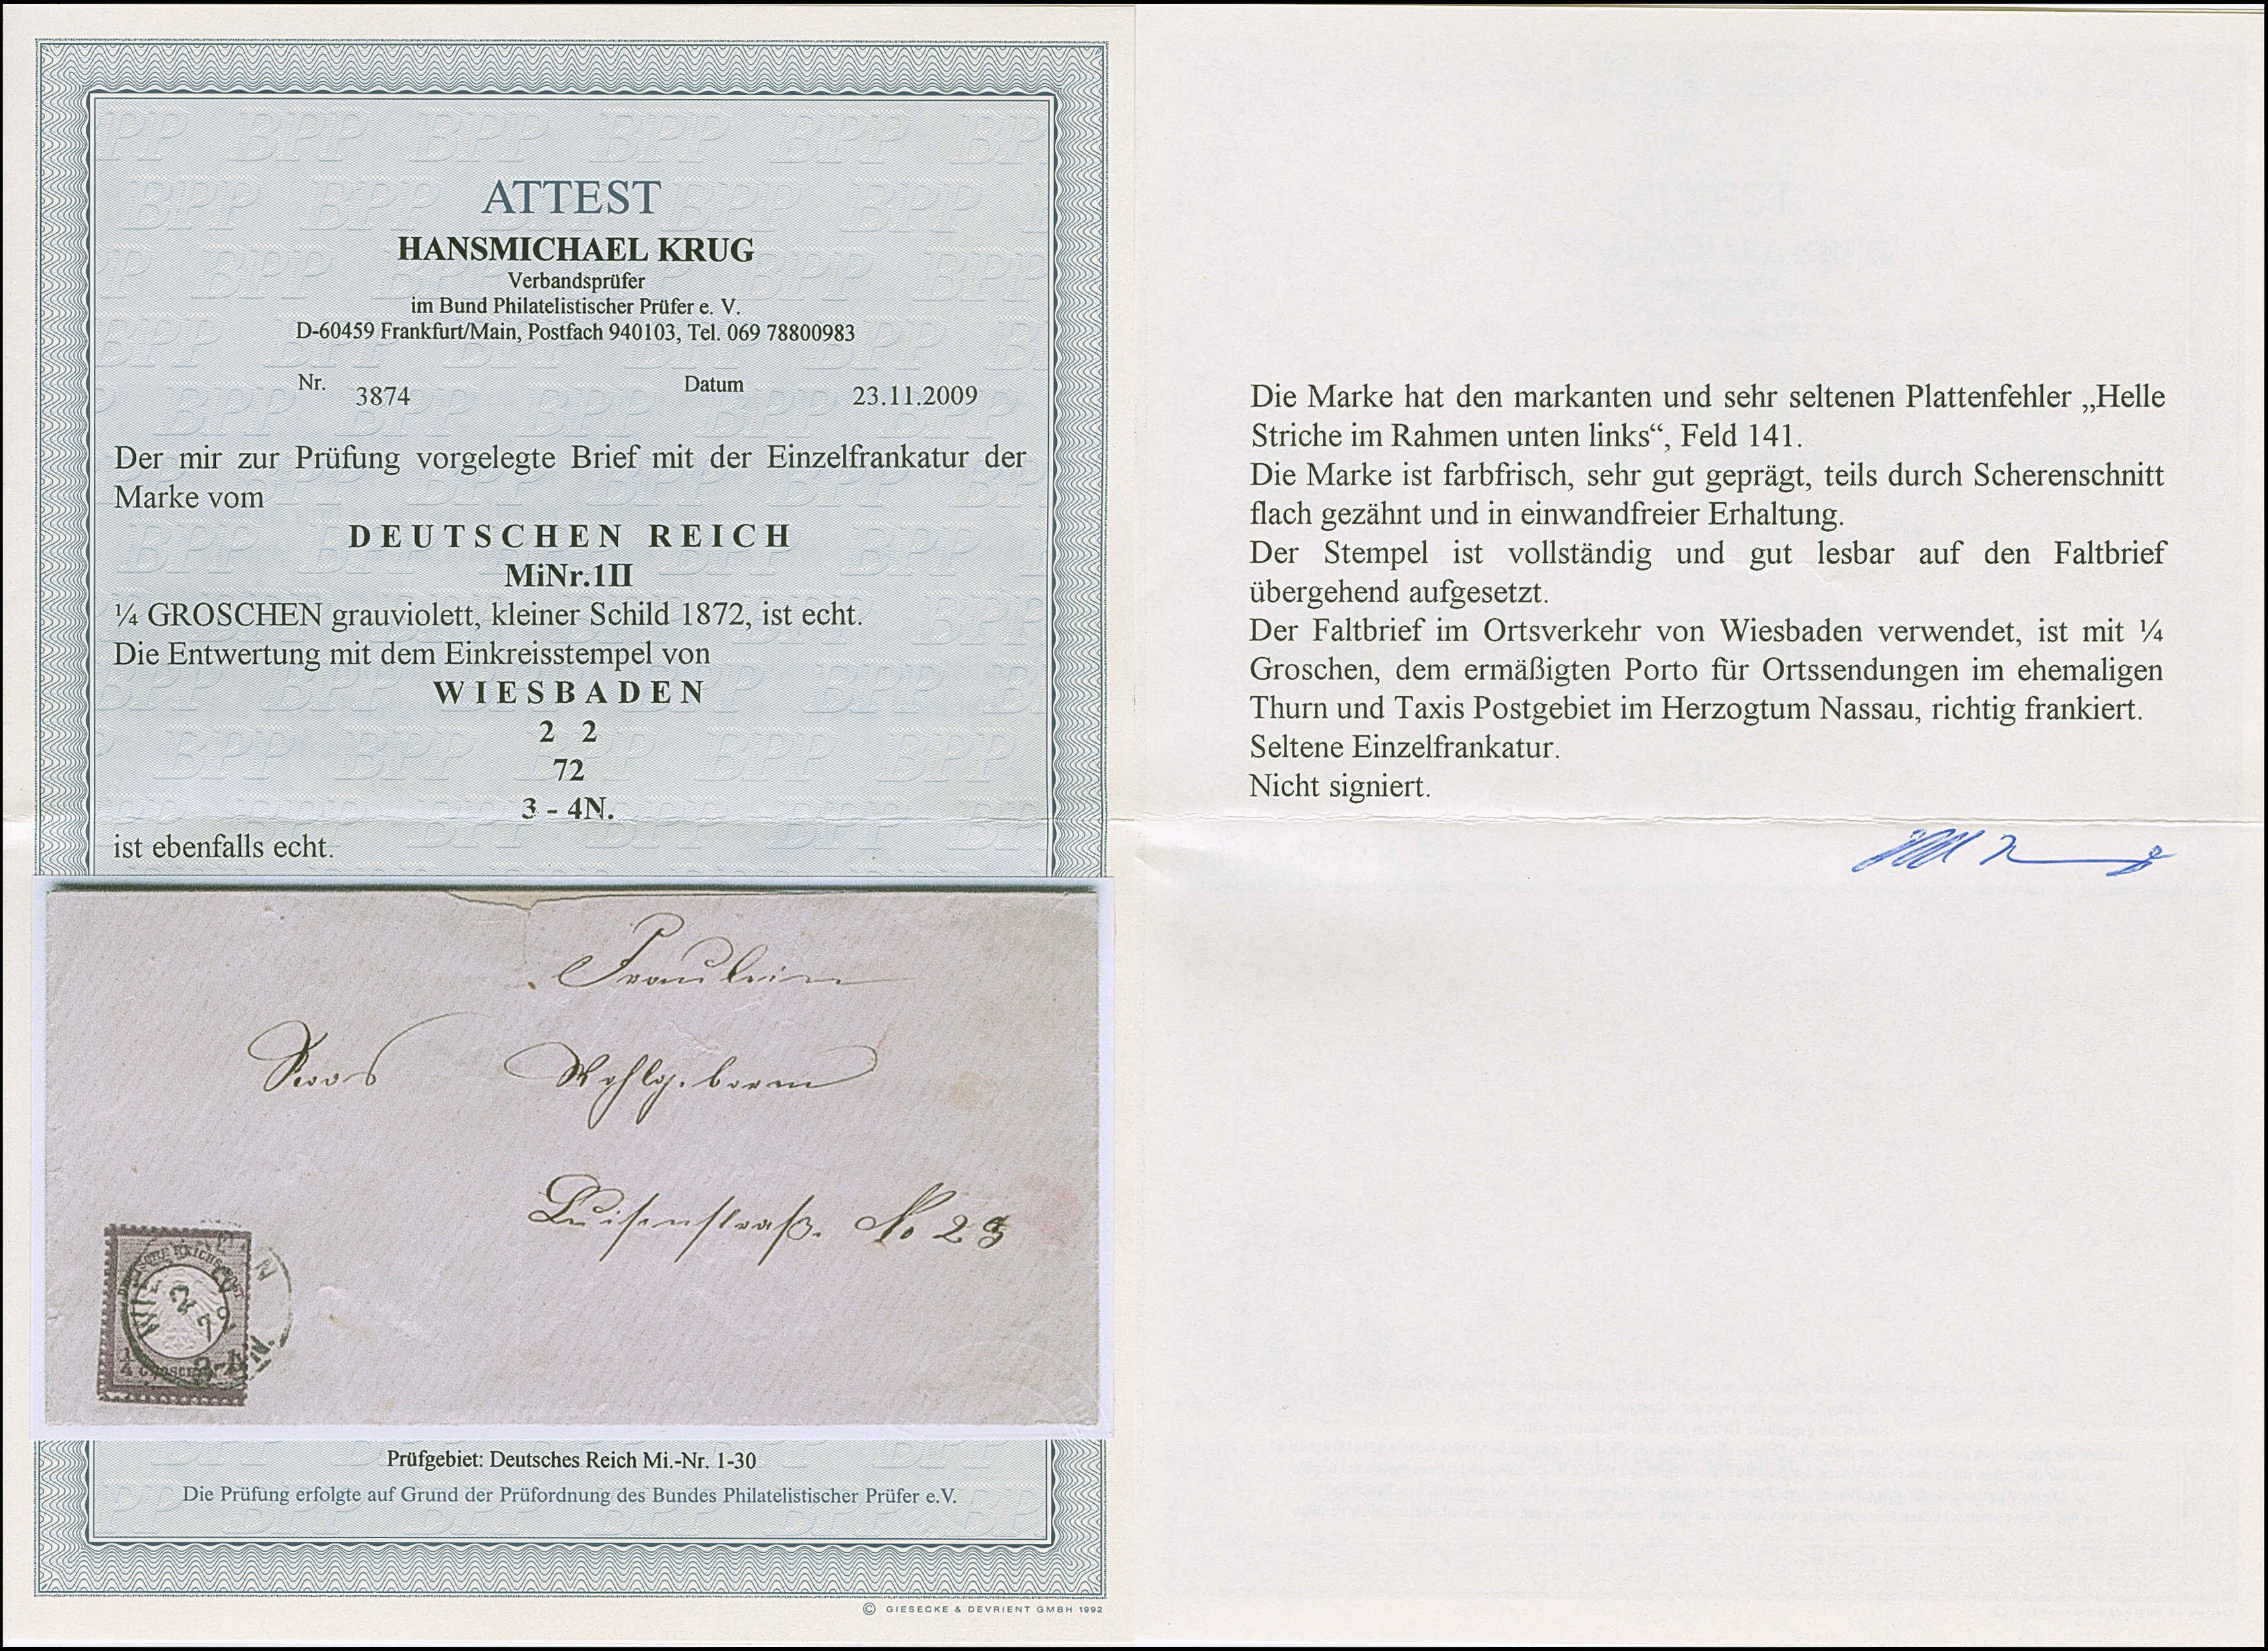 ATTEST
HANSMICHAEL KRUG
Verbandsprüfer
im Bund Philatelistischer Prüfer e. V.
D-60459 Frankfurt/Main, Postfach 940103, Tel. 069 78800983
Nr. 3874 Datum 23.11.2009
Der mir zur Prüfung vorgelegte Brief mit der Einzelfrankatur der
Marke vom
DEUTSCHEN REICH
MiNr.1II
¼ GROSCHEN grauviolett, kleiner Schild 1872, ist echt.
Die Entwertung mit dem Einkreisstempel von
WIESBADEN
2 2
72
3 - 4N.
ist ebenfalls echt.
Fräulein
Roos Wohlgeboren
Luisenstraß. No 23
¼ GROSCHEN
Prüfgebiet: Deutsches Reich Mi.-Nr. 1-30
Die Prüfung erfolgte auf Grund der Prüfordnung des Bundes Philatelistischer Prüfer e.V.
© GIESECKE & DEVRIENT GMBH 1992
Die Marke hat den markanten und sehr seltenen Plattenfehler „Helle
Striche im Rahmen unten links“, Feld 141.
Die Marke ist farbfrisch, sehr gut geprägt, teils durch Scherenschnitt
flach gezähnt und in einwandfreier Erhaltung.
Der Stempel ist vollständig und gut lesbar auf den Faltbrief
übergehend aufgesetzt.
Der Faltbrief im Ortsverkehr von Wiesbaden verwendet, ist mit ¼
Groschen, dem ermäßigten Porto für Ortssendungen im ehemaligen
Thurn und Taxis Postgebiet im Herzogtum Nassau, richtig frankiert.
Seltene Einzelfrankatur.
Nicht signiert.